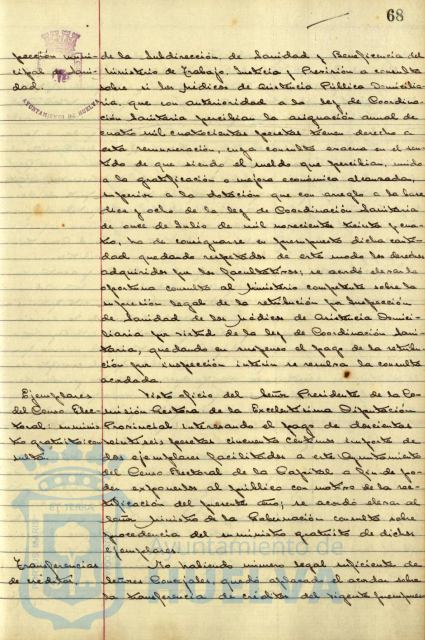 68
AYUNTAMIENTO DE HUELVA
pección muni-
cipal de Sani-
dad.
de la Subdirección de Sanidad y Beneficencia del
Ministerio de Trabajo, Justicia y Previsión a consulta
sobre si los Médicos de Asistencia Pública Domicilia-
ria, que con anterioridad a la ley de Coordina-
ción Sanitaria percibían la asignación anual de
cuatro mil cuatrocientas pesetas tienen derecho a
esta remuneración, cuya consulta evacua en el sen-
tido de que siendo el sueldo que percibían, unido
a la gratificación o mejora económica alcanzada,
superior a la dotación que con arreglo a la base
diez y ocho de la ley de Coordinación Sanitaria
de once de Julio de mil novecientos treinta y cua-
tro, ha de consignarse en presupuesto dicha canti-
dad quedando respetados de este modo los derechos
adquiridos por los facultativos; se acordó elevar la
oportuna consulta al Ministerio competente sobre la
supresión legal de la retribución por Inspección
de Sanidad de los Médicos de Asistencia Domici-
liaria por virtud de la ley de Coordinación Sani-
taria, quedando en suspenso el pago de la retribu-
ción por inspección interin se resuelva la consulta
acordada.
Ejemplares
del Censo Elec-
toral: suminis-
tro gratuito: con-
sulta.
Visto oficio del Señor Presidente de la Co-
misión Gestora de la Excelentísima Diputación
Provincial interesando el pago de doscientas
veintiseis pesetas cincuenta céntimos importe de
dos ejemplares facilitados a este Ayuntamiento
del Censo Electoral de la Capital a fin de po-
der exponerlos al público con motivo de la rec-
tificación del presente año; se acordó elevar al
Señor Ministro de la Gobernación consulta sobre
procedencia del suministro gratuito de dichos
ejemplares.
Transferencias
de créditos.
No habiendo número legal suficiente de
Señores Concejales quedó aplazado el acordar sobre
la transferencia de créditos del vigente presupues-
Ayuntamiento de
HUELVA